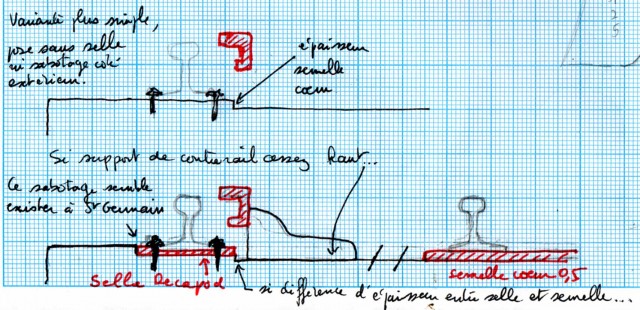 Variante plus simple,
pose sans selle
ni sabotage coté
extérieur.
épaisseur
semelle
cœur
Si support de contrerail assez haut...
Ce sabotage semble
exister à St Germain
Selle Decapod
semelle cœur 0,5
si différence d'épaisseur entre selle et semelle...